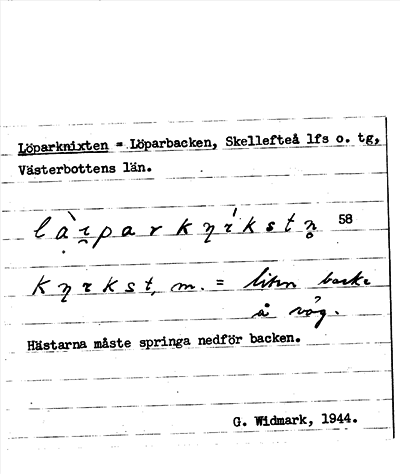 Löparknixten = Löparbacken, Skellefteå lfs o. tg,
Västerbottens län.
58
m. = liten backe
å väg.
Hästarna måste springa nedför backen.
G. Widmark, 1944.